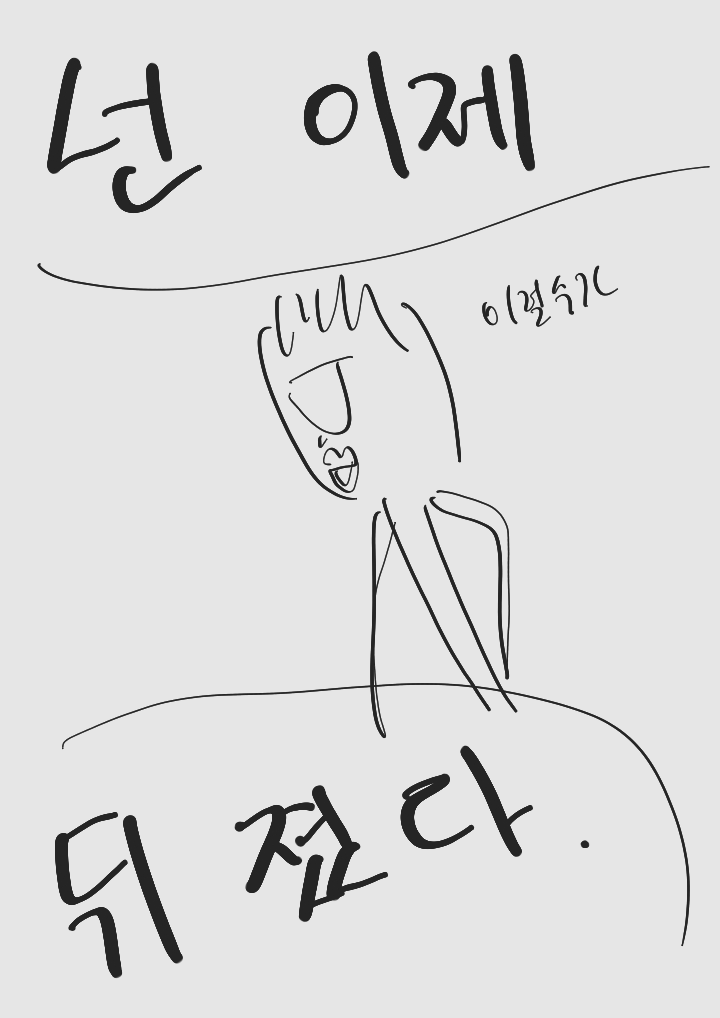 넌 이제
이럴수가
뒤 졌다.